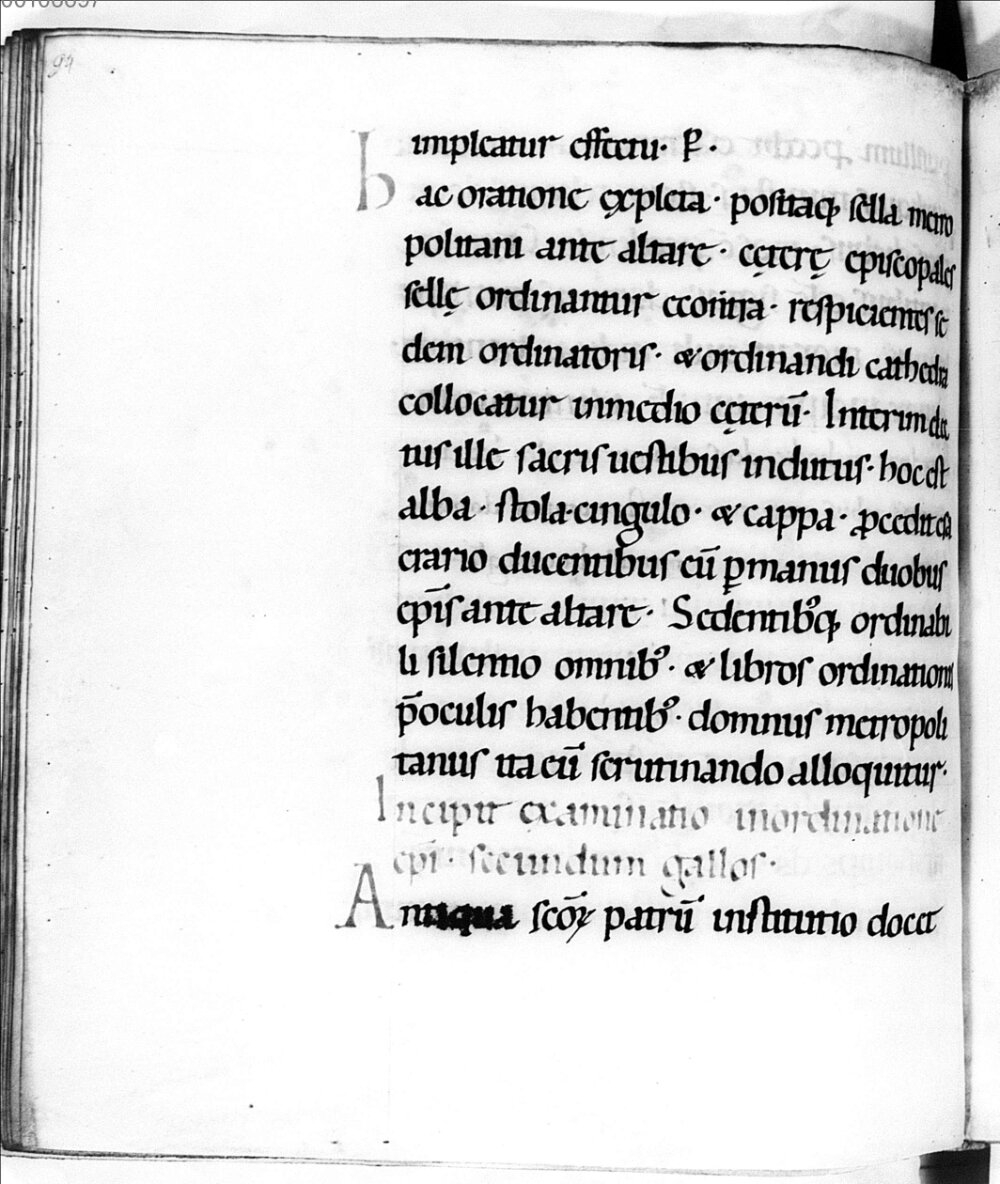 94
impleatur effectu· P̱·
hac oratione ęxpleta· positaq; sella metro
politani ante altare· cęterę episcopales
sellę ordinantur econtra· respicientes se
dem ordinatoris· & ordinandi cathedra
collocatur inmedio cęterū· Interim elec
tus ille sacris uestibus indutus· hoc est
alba· stola· cingulo· & cappa· ꝓcedit esa
crario ducentibus eū ꝑmanus duobus
ep̄is ante altare· Sedentibꝰq; ordinabi
li silentio omnibꝰ· & libros ordinationis
p̄oculis habentibꝰ· domnus metropoli
tanus ita eū scrutinando alloquitur·
Incipit ęxaminatio inordinatione
epi· secundum gallos·
Antiqua scōꝝ patrū institutio docet